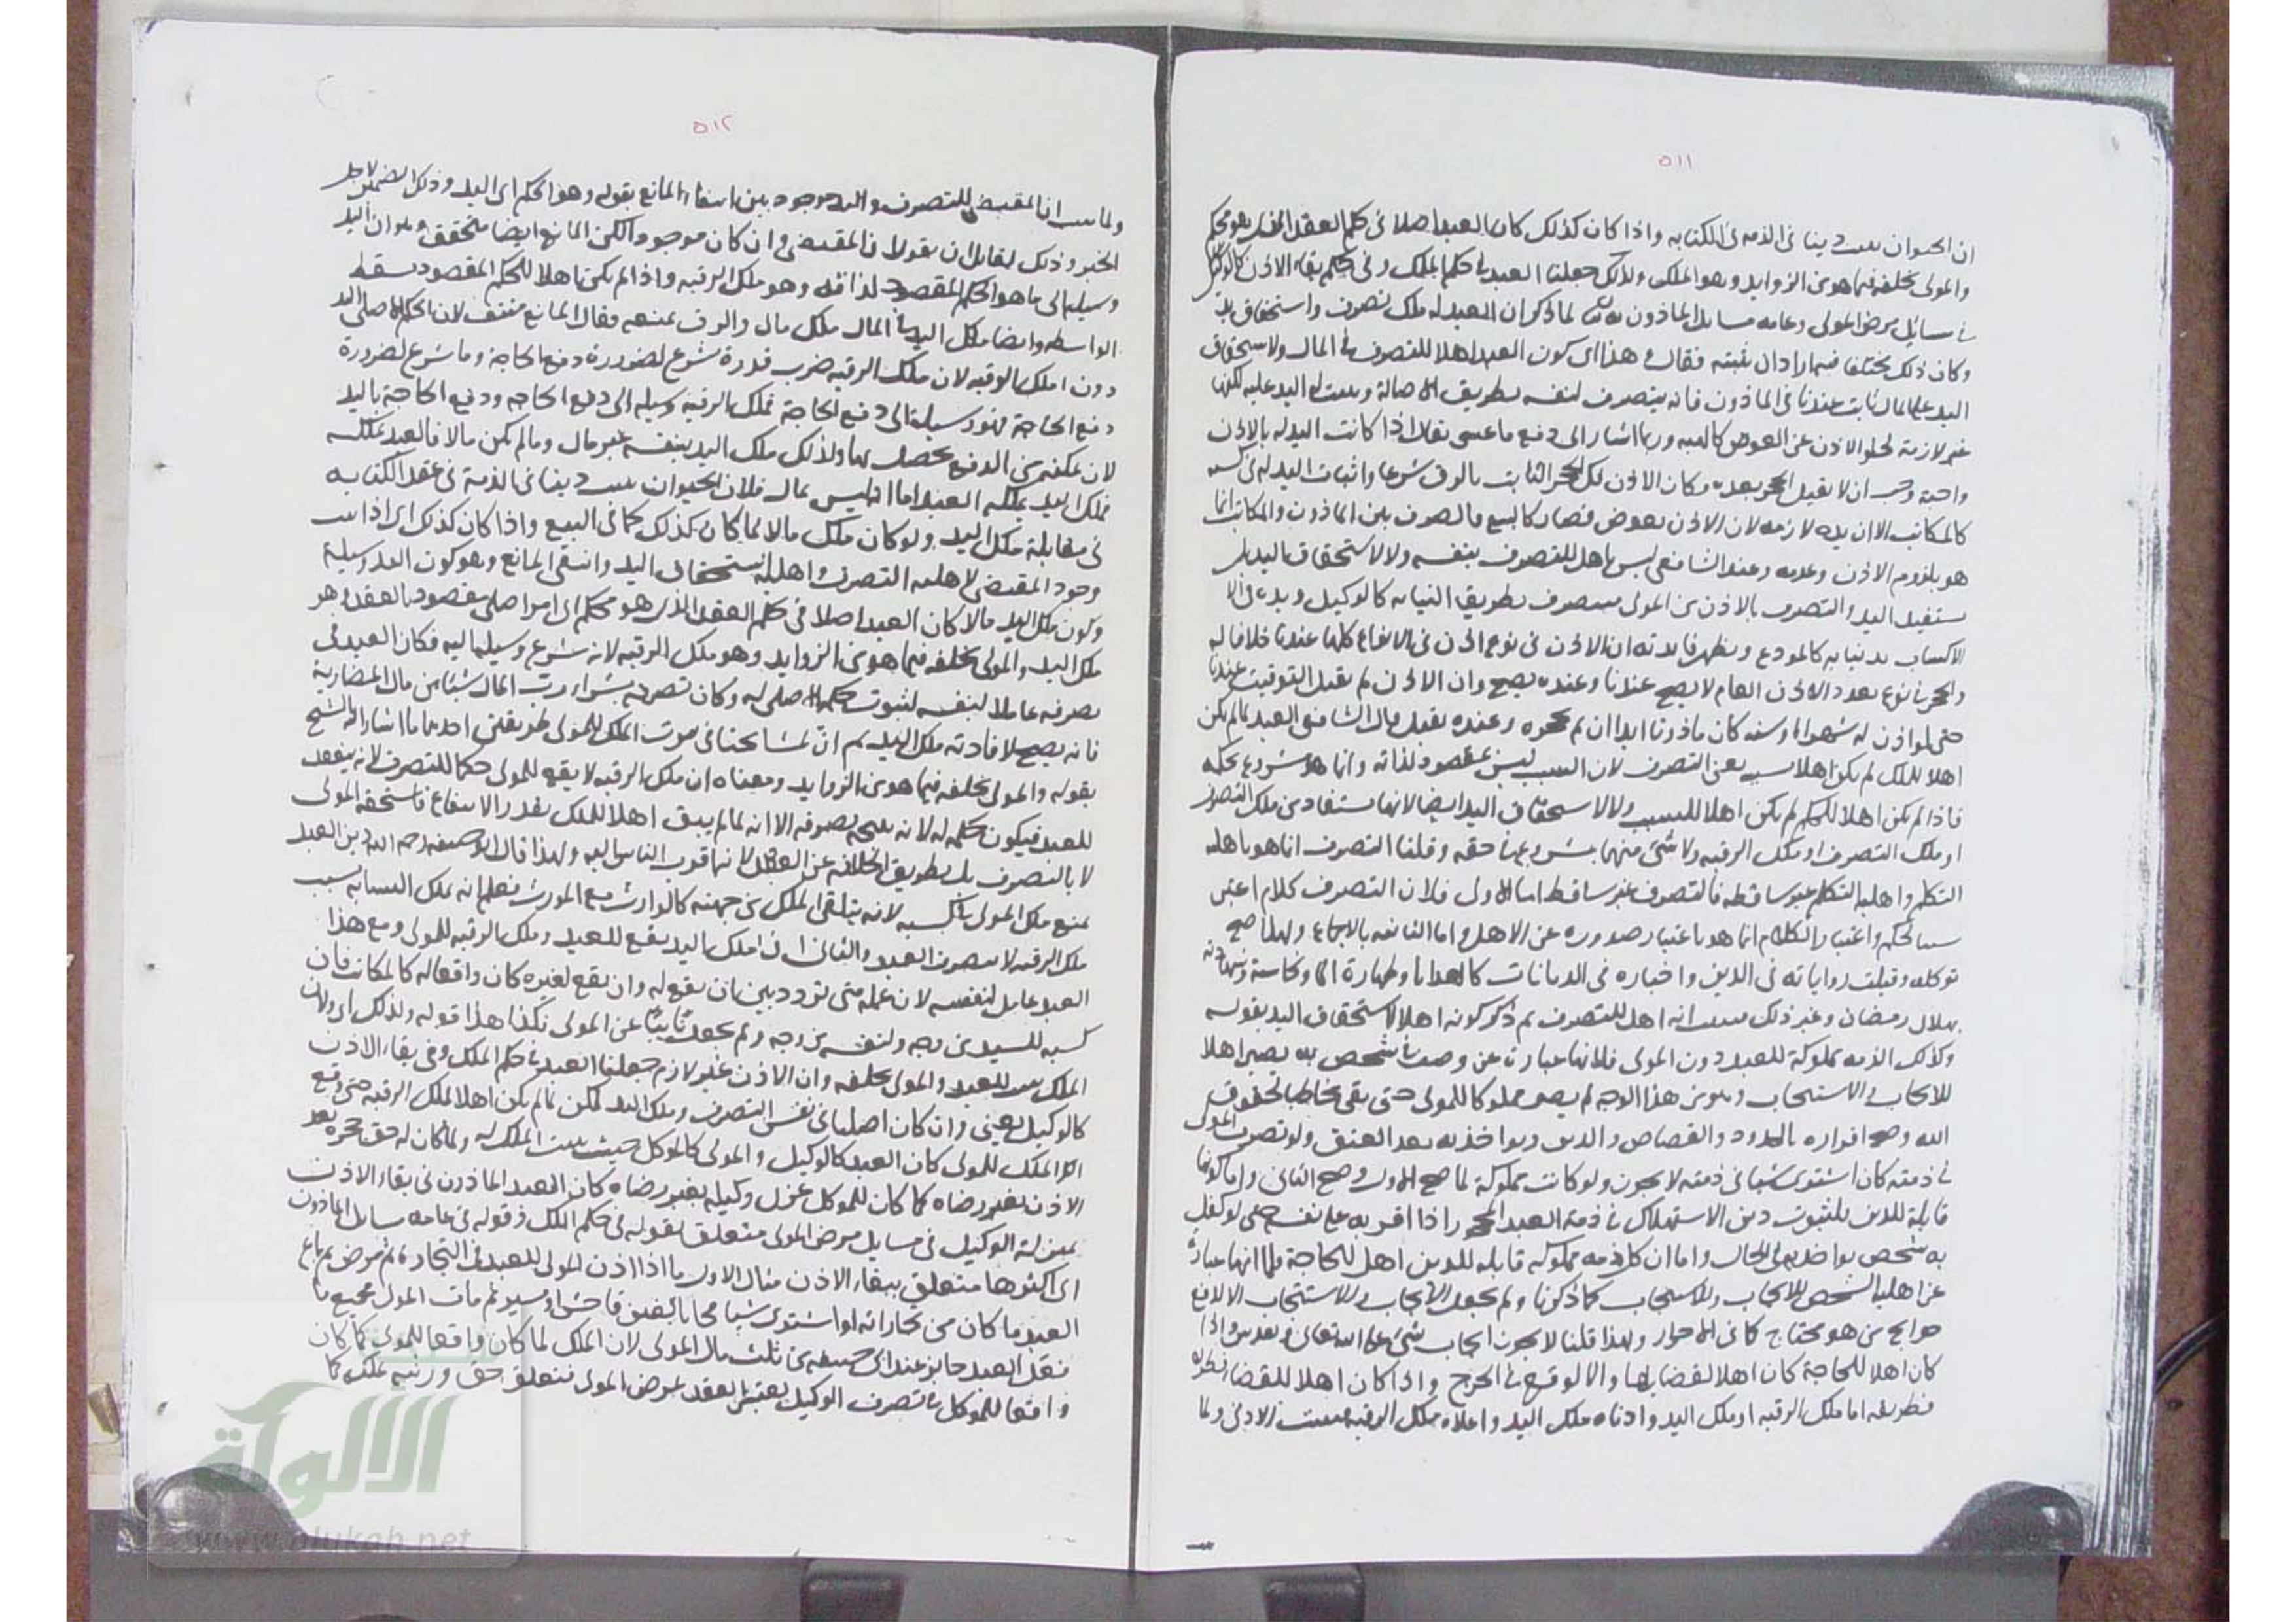 ٥١١
ان الحيوان يثبت دينا في الذمة في الكتابه واذا كان كذلك كان العبد اصلا في حكم العقد الذي هو محكم
والمولى يخلفه فيما هو من الزوايد وهو الملك ولذلك جعلنا العبد في حكم الملك وفي حكم بقاء الاذن كالوكيل
في مسائل مرض المولى وعامه مسايل الماذون لما ذكر ان العبد له ملك تصرف واستحقاق يد
وكان ذلك مختلفا فيه اراد ان يثبته فقال هذا اي كون العبد اهلا للتصرف في المال ولاستحقاق
اليد على المال ثابت عندنا في الماذون فانه يتصرف لنفسه بطريق الاصالة ويثبت له اليد عليه لكنها
غير لازمة لخلو الاذن عن العوض كالهبه وربما اشار الى دفع ما عسى يقال اذا كانت اليد له بالاذن
واجبة وجب ان لا يقبل الحجر بعده فكان الاذن فك الحجر الثابت بالرق شرعا واثبات اليد له في كسبه
كالمكاتب الا ان يده لازمه لان الاذن بعوض فصار كالبيع فالفرق بين الماذون والمكاتب انما
هو بلزوم الاذن وعدمه وعند الشافعي ليس باهل للتصرف بنفسه ولا لاستحقاق اليد بل
يستفيد اليد والتصرف بالاذن من المولى فيتصرف بطريق النيابه كالوكيل ويده في
الاكساب يد نيابه كالمودع ويظهر فايدته ان الاذن في نوع اذن في الانواع كلها عندنا خلافا له
والحجر في نوع بعد الاذن العام لا يصح عندنا وعنده يصح وان الاذن لم يقبل التوقيت عندنا
حتى لو اذن له شهرا او سنه كان ماذونا ابدا ان لم يحجره وعنده يقبل قال الشافعي العبد لما لم يكن
اهلا للملك لم يكن اهلا لسببه يعني التصرف لان السبب ليس بمقصود لذاته وانما هو مشروع لحكمه
فاذا لم يكن اهلا للحكم لم يكن اهلا للسبب ولا لاستحقاق اليد ايضا لانها مستفاد من ملك التصرف
او ملك التصرف او ملك الرقبه ولا شئ منهما بمشروع في حقه وقلنا التصرف انما هو باهليه
التكلم واهليه التكلم غير ساقطه فالتصرف غير ساقط اما الاولى فلان التصرف كلام اعتبر
سببا لحكم واعتبار الكلام انما هو باعتبار صدوره عن الاهل واما الثانيه بالاجماع ولهذا صح
توكله وقبلت رواياته في الدين واخباره في الديانات كالهدايا وطهارة الماء ونجاسته وشهادته
بهلال رمضان وغير ذلك فثبت انه اهل للتصرف ثم ذكر كونه اهلا لاستحقاق اليد بقوله
وكذلك الذمه مملوكة للعبد دون المولى فلانها عبارة عن وصف في شخص به يصير اهلا
للايجاب والاستيجاب وهو من هذا الوجه لم يصر مملوكا للمولى حتى بقي مخاطبا بحقوق
الله وصح اقراره بالحدود والقصاص والدين ويواخذ به بعد العتق ولو تصرف المولى
في ذمته كان اشترى شيئا في ذمته لا يجوز ولو كانت مملوكة لما صح الاول وصح الثاني واما كونها
قابلة للدين فلثبوت دين الاستهلاك في ذمة العبد المحجور اذا اقر به على نفسه حتى لو كفل
به شخص يواخذ به في الحال واما ان كل ذمه مملوكه قابله للدين اهل للحاجة فلما انها عبارة
عن اهليه الشخص للايجاب والاستيجاب كما ذكرنا ولم يجعل الايجاب والاستيجاب الا لدفع
حوايج من هو محتاج كما في الاحرار ولهذا قلنا لا يجوز ايجاب شئ على الله تعالى وتقدس واذا
كان اهلا للحاجة كان اهلا لقضايها والا لوقع في الحرج واذا كان اهلا للقضاء فطريقه
فطريقه اما ملك الرقبه او ملك اليد وادناه ملك اليد واعلاه ملك الرقبه فيثبت الادنى ولما
٥١٢
ولما بين ان المقتضى للتصرف واليد موجود بين انتفاء المانع بقوله وهو الحكم اي اليد وذلك
الخبر وذلك لقايل ان يقول ان المقتضى وان كان موجودا لكن المانع ايضا متحقق وهو ان اليد
وسيلة الى ما هو الحكم المقصود لذاته وهو ملك الرقبه واذا لم يكن اهلا للحكم المقصود سقط
الواسطه وايضا ملك اليد المال ملك مال والرق يمنعه فقال المانع منتف لان الحكم الاصلي اليد
دون ملك الرقبه لان ملك الرقبه ضرب قدرة شرع لضرورة دفع الحاجة وما شرع لضرورة
دفع الحاجة فهو وسيلة الى دفع الحاجة فملك الرقبه وسيله الى دفع الحاجه ودفع الحاجة باليد
لان تمكنه من الدفع يحصل بها ولذلك ملك اليد بنفسه غير مال وما لم يكن مالا فالعبد يملكه
فملك اليد يملكه العبد اما انه ليس بمال فلان الحيوان يثبت دينا في الذمة في عقد الكتابه
في مقابلة ملك اليد ولو كان ملك مالا لما كان كذلك كما في البيع واذا كان كذلك اي اذا ثبت
وجود المقتضى لاهليه التصرف واهلية استحقاق اليد وانتفى المانع وهو كون اليد وسيلة
وكون ملك اليد مالا كان العبد اصلا في حكم العقد الذي هو محكم اي امر اصلي مقصود بالعقد وهو
ملك اليد والمولى يخلفه فيما هو من الزوايد وهو ملك الرقبه لانه شرع وسيله اليه فكان العبد في
تصرفه عاملا لنفسه لثبوت حكمه الاصلي له وكان تصرفه بشراء رب المال شيئا من مال المضاربة
فانه يصح لافادته ملك اليد ثم ان لمشايخنا في ثبوت الملك للمولى طريقتين احدهما ما اشار اليه الشيخ
بقوله والمولى يخلفه فيما هو من الزوايد ومعناه ان ملك الرقبه لا يقع للمولى حكما للتصرف لانه ينعقد
للعبد فيكون حكمه له لانه نتيجه تصرفه الا انه لما لم يبق اهلا للملك بقدر الاستفاع فاستحقه المولى
لا بالتصرف بل بطريق الخلافه عن العبد لانه اقرب الناس اليه ولهذا قال ابو حنيفه رحمه الله دين العبد
يمنع ملك المولى في كسبه لانه يتلقى الملك من جهته كالوارث مع المورث فعلم انه ملك المسبب بسبب
ملك الرقبه لا بتصرف العبد والثاني ان ملك اليد يقع للعبد وملك الرقبه للمولى ومع هذا
العبد عامل لنفسه لان عمله متى تردد بين ان يقع له وان يقع لغيره كان واقعا له كالمكاتب فان
كسبه للسيد من وجه ولنفسه من وجه ولم يجعل نايبا عن المولى فكذا هذا قوله ولذلك اي ولان
الملك يثبت للعبد والمولى يخلفه وان الاذن غير لازم جعلنا العبد في حكم الملك وفي بقاء الاذن
كالوكيل يعني وان كان اصليا في نفس التصرف وملك اليد لكن لما لم يكن اهلا لملك الرقبه حتى وقع
الملك للمولى كان العبد كالوكيل والمولى كالموكل حيث يثبت الملك له ولما كان له حق حجره بعد
الاذن بغير رضاه كما كان للموكل عزل وكيله بغير رضاه كان العبد الماذون في بقاء الاذن
بمنزلة الوكيل في مسايل مرض المولى متعلق بقوله في حكم الملك وقوله في عامة مسايل الماذون
اي اكثرها متعلق ببقاء الاذن مثال الاول ما اذا اذن المولى للعبد في التجارة ثم مرض ثم باع
العبد ما كان من تجاراته او اشترى شيئا محابا بالغبن فاحش او يسير ثم مات المولى فجميع ما
فعل العبد جايز عند ابي حنيفه من ثلث مال المولى لان الملك لما كان واقعا للمولى كما كان
واقعا للموكل في تصرف الوكيل يعتبر العقد لمرض المولى فتعلق حق ورثته بملكه كما
الألوكة
www.alukah.net